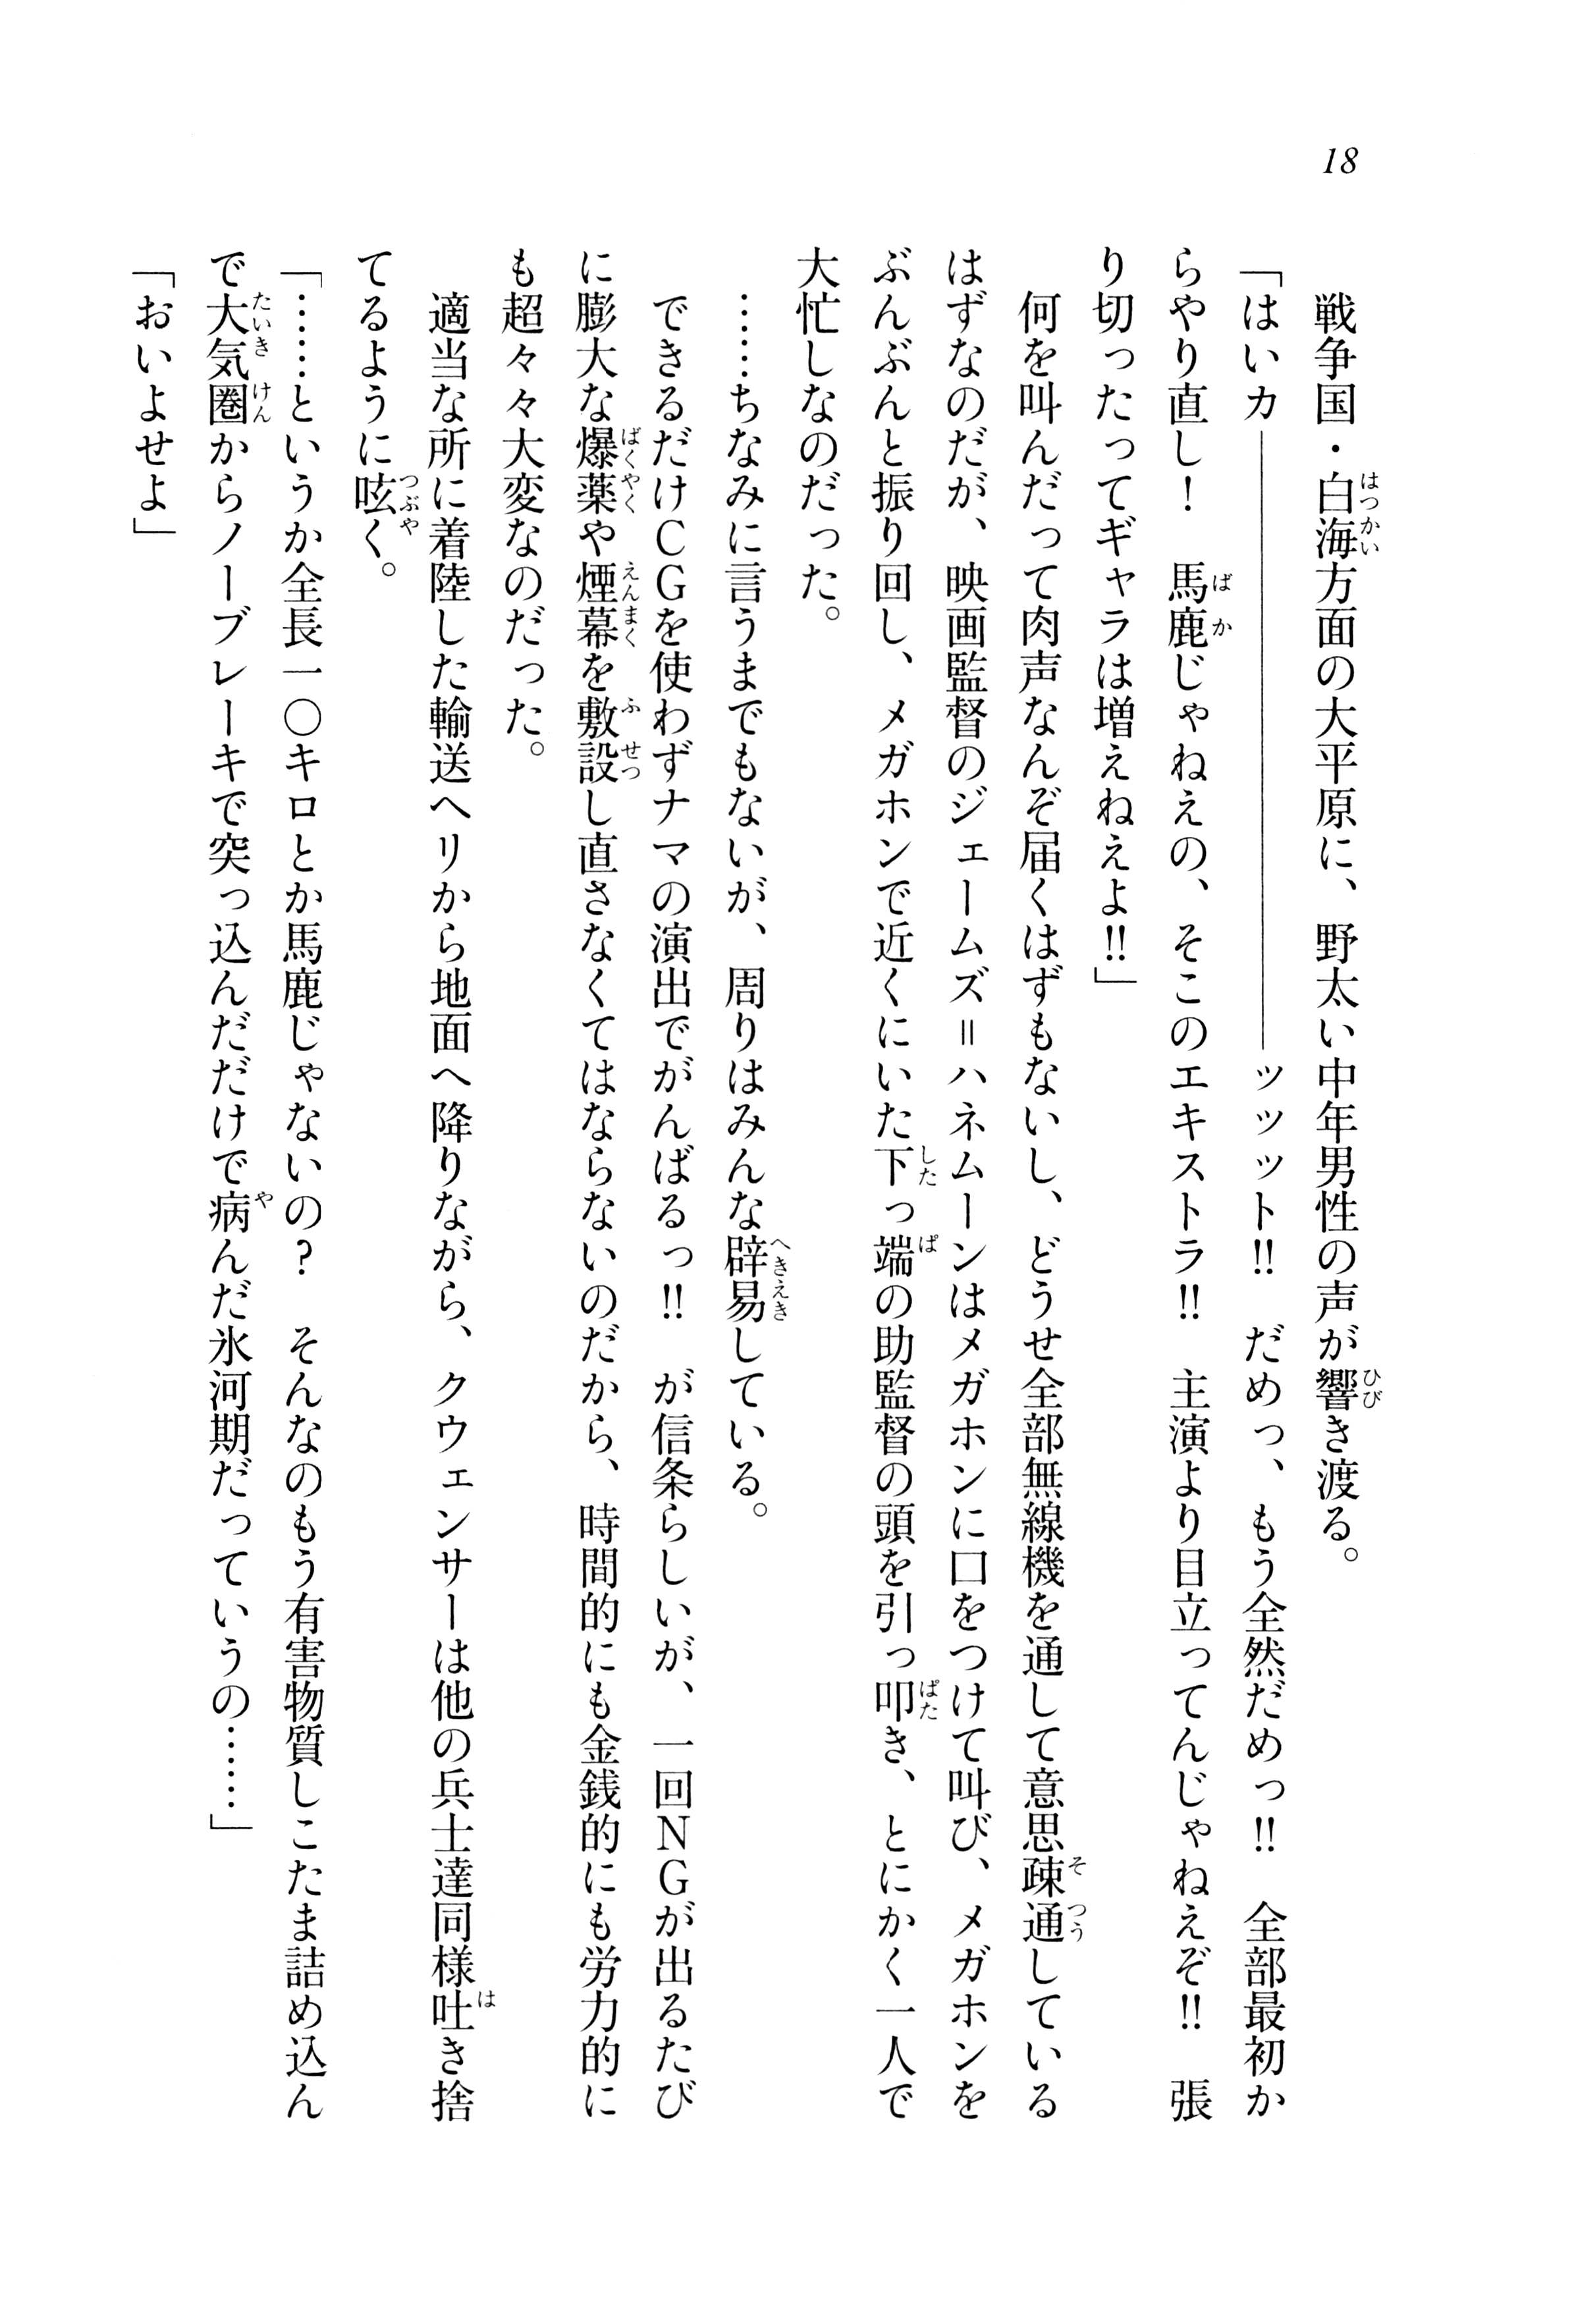 18
　戦争国・白海方面の大平原に、野太い中年男性の声が響き渡る。
「はいカ――――――――――――――ッッット!!　だめっ、もう全然だめっ!!　全部最初か
らやり直し！　馬鹿じゃねえの、そこのエキストラ!!　主演より目立ってんじゃねえぞ!!　張
り切ったってギャラは増えねえよ!!」
　何を叫んだって肉声なんぞ届くはずもないし、どうせ全部無線機を通して意思疎通している
はずなのだが、映画監督のジェームズ＝ハネムーンはメガホンに口をつけて叫び、メガホンを
ぶんぶんと振り回し、メガホンで近くにいた下っ端の助監督の頭を引っ叩き、とにかく一人で
大忙しなのだった。
　……ちなみに言うまでもないが、周りはみんな辟易している。
　できるだけＣＧを使わずナマの演出でがんばるっ!!　が信条らしいが、一回ＮＧが出るたび
に膨大な爆薬や煙幕を敷設し直さなくてはならないのだから、時間的にも金銭的にも労力的に
も超々々大変なのだった。
　適当な所に着陸した輸送ヘリから地面へ降りながら、クウェンサーは他の兵士達同様吐き捨
てるように呟く。
「……というか全長一〇キロとか馬鹿じゃないの？　そんなのもう有害物質しこたま詰め込ん
で大気圏からノーブレーキで突っ込んだだけで病んだ氷河期だっていうの……」
「おいよせよ」